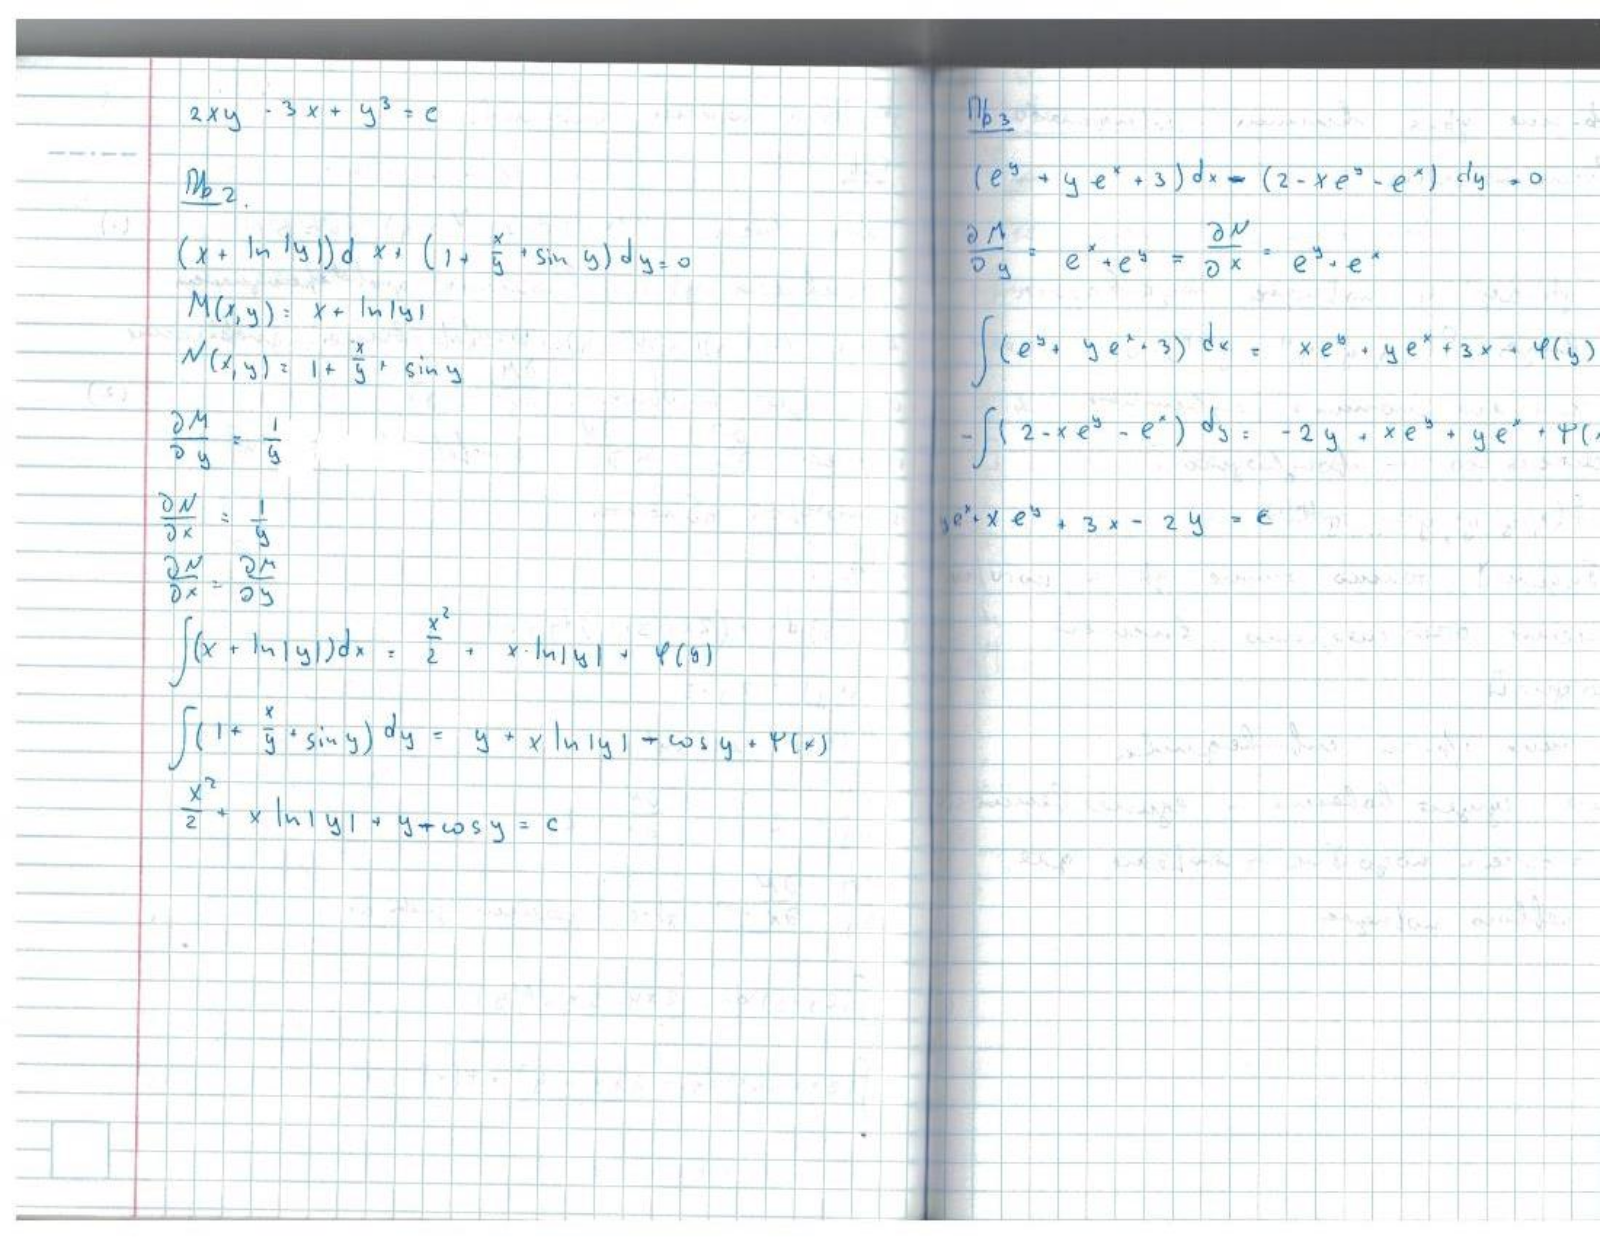 2xy - 3x + y³ = c
Пр 2.
(x + ln|y|)dx + (1 + x/y + sin y)dy = 0
M(x,y) = x + ln|y|
N(x,y) = 1 + x/y + sin y
∂M/∂y = 1/y
∂N/∂x = 1/y
∂N/∂x = ∂M/∂y
∫(x + ln|y|)dx = x²/2 + x·ln|y| + φ(y)
∫(1 + x/y + sin y)dy = y + x ln|y| - cos y + Ψ(x)
x²/2 + x ln|y| + y - cos y = c
Пр 3
(e^y + ye^x + 3)dx - (2 - xe^y - e^x)dy = 0
∂M/∂y = e^x + e^y = ∂N/∂x = e^y + e^x
∫(e^y + ye^x + 3)dx = xe^y + ye^x + 3x + φ(y)
-∫(2 - xe^y - e^x)dy = -2y + xe^y + ye^x + Ψ(
ye^x + xe^y + 3x - 2y = c